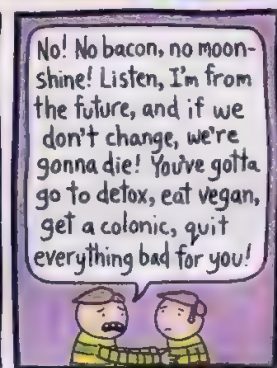 No! No bacon, no moon-
shine! Listen, I'm from
the future, and if we
don't change, we're
gonna die! You've gotta
go to detox, eat vegan,
get a colonic, quit
everything bad for you!